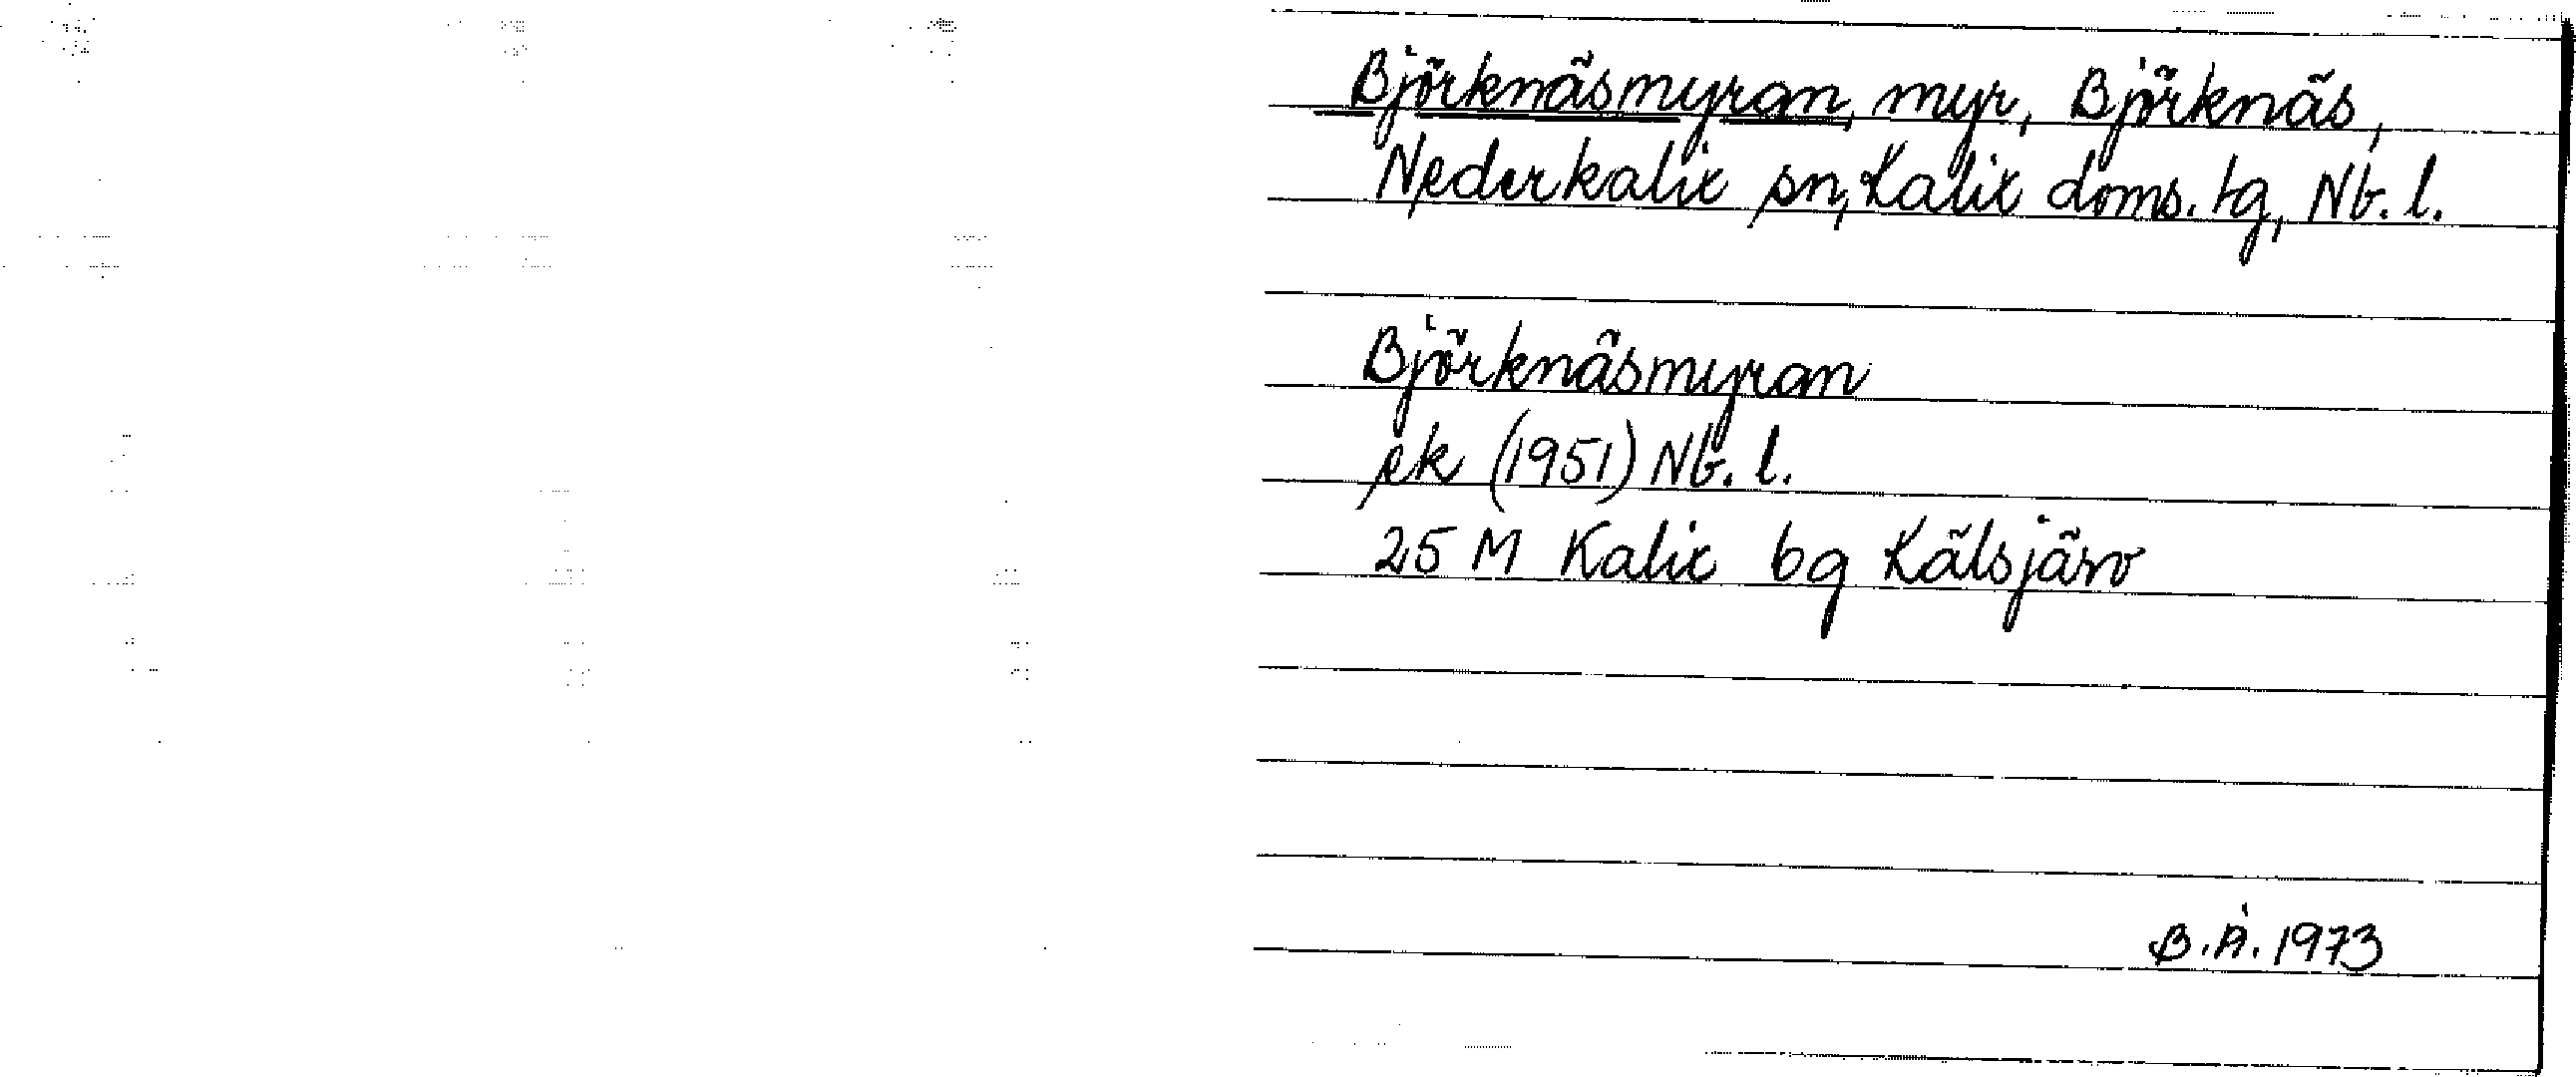 Björknäsmyran, myr, Björknäs,
Nederkalix sn, Kalix doms. tg, Nb. l.
Björknäsmyran
ek (1951) Nb. l.
25 M Kalix bg Kälsjärv
B.Å. 1973